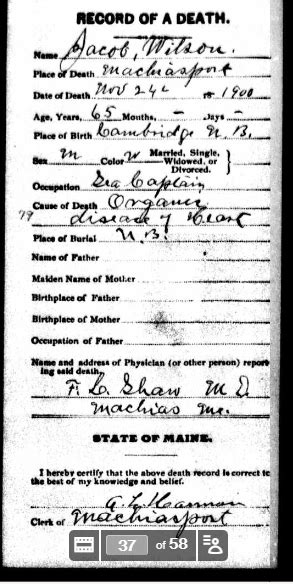 RECORD OF A DEATH.
Name Jacob, Wilson.
Place of Death Machiasport
Date of Death Nov 24th 18 1900
Age, Years, 65 Months, - Days -
Place of Birth Cambridge N. B.
Sex M Color W Married, Single, Widowed, or Divorced.
Occupation Sea Captain
Cause of Death Organic
79 disease of Heart
Place of Burial N. B.
Name of Father
Maiden Name of Mother
Birthplace of Father
Birthplace of Mother
Occupation of Father
Name and address of Physician (or other person) report
ing said death,
F. L. Shaw M D.
Machias Me.
STATE OF MAINE.
I hereby certify that the above death record is correct to
the best of my knowledge and belief.
Harmon
Clerk of Machiasport
37 of 58